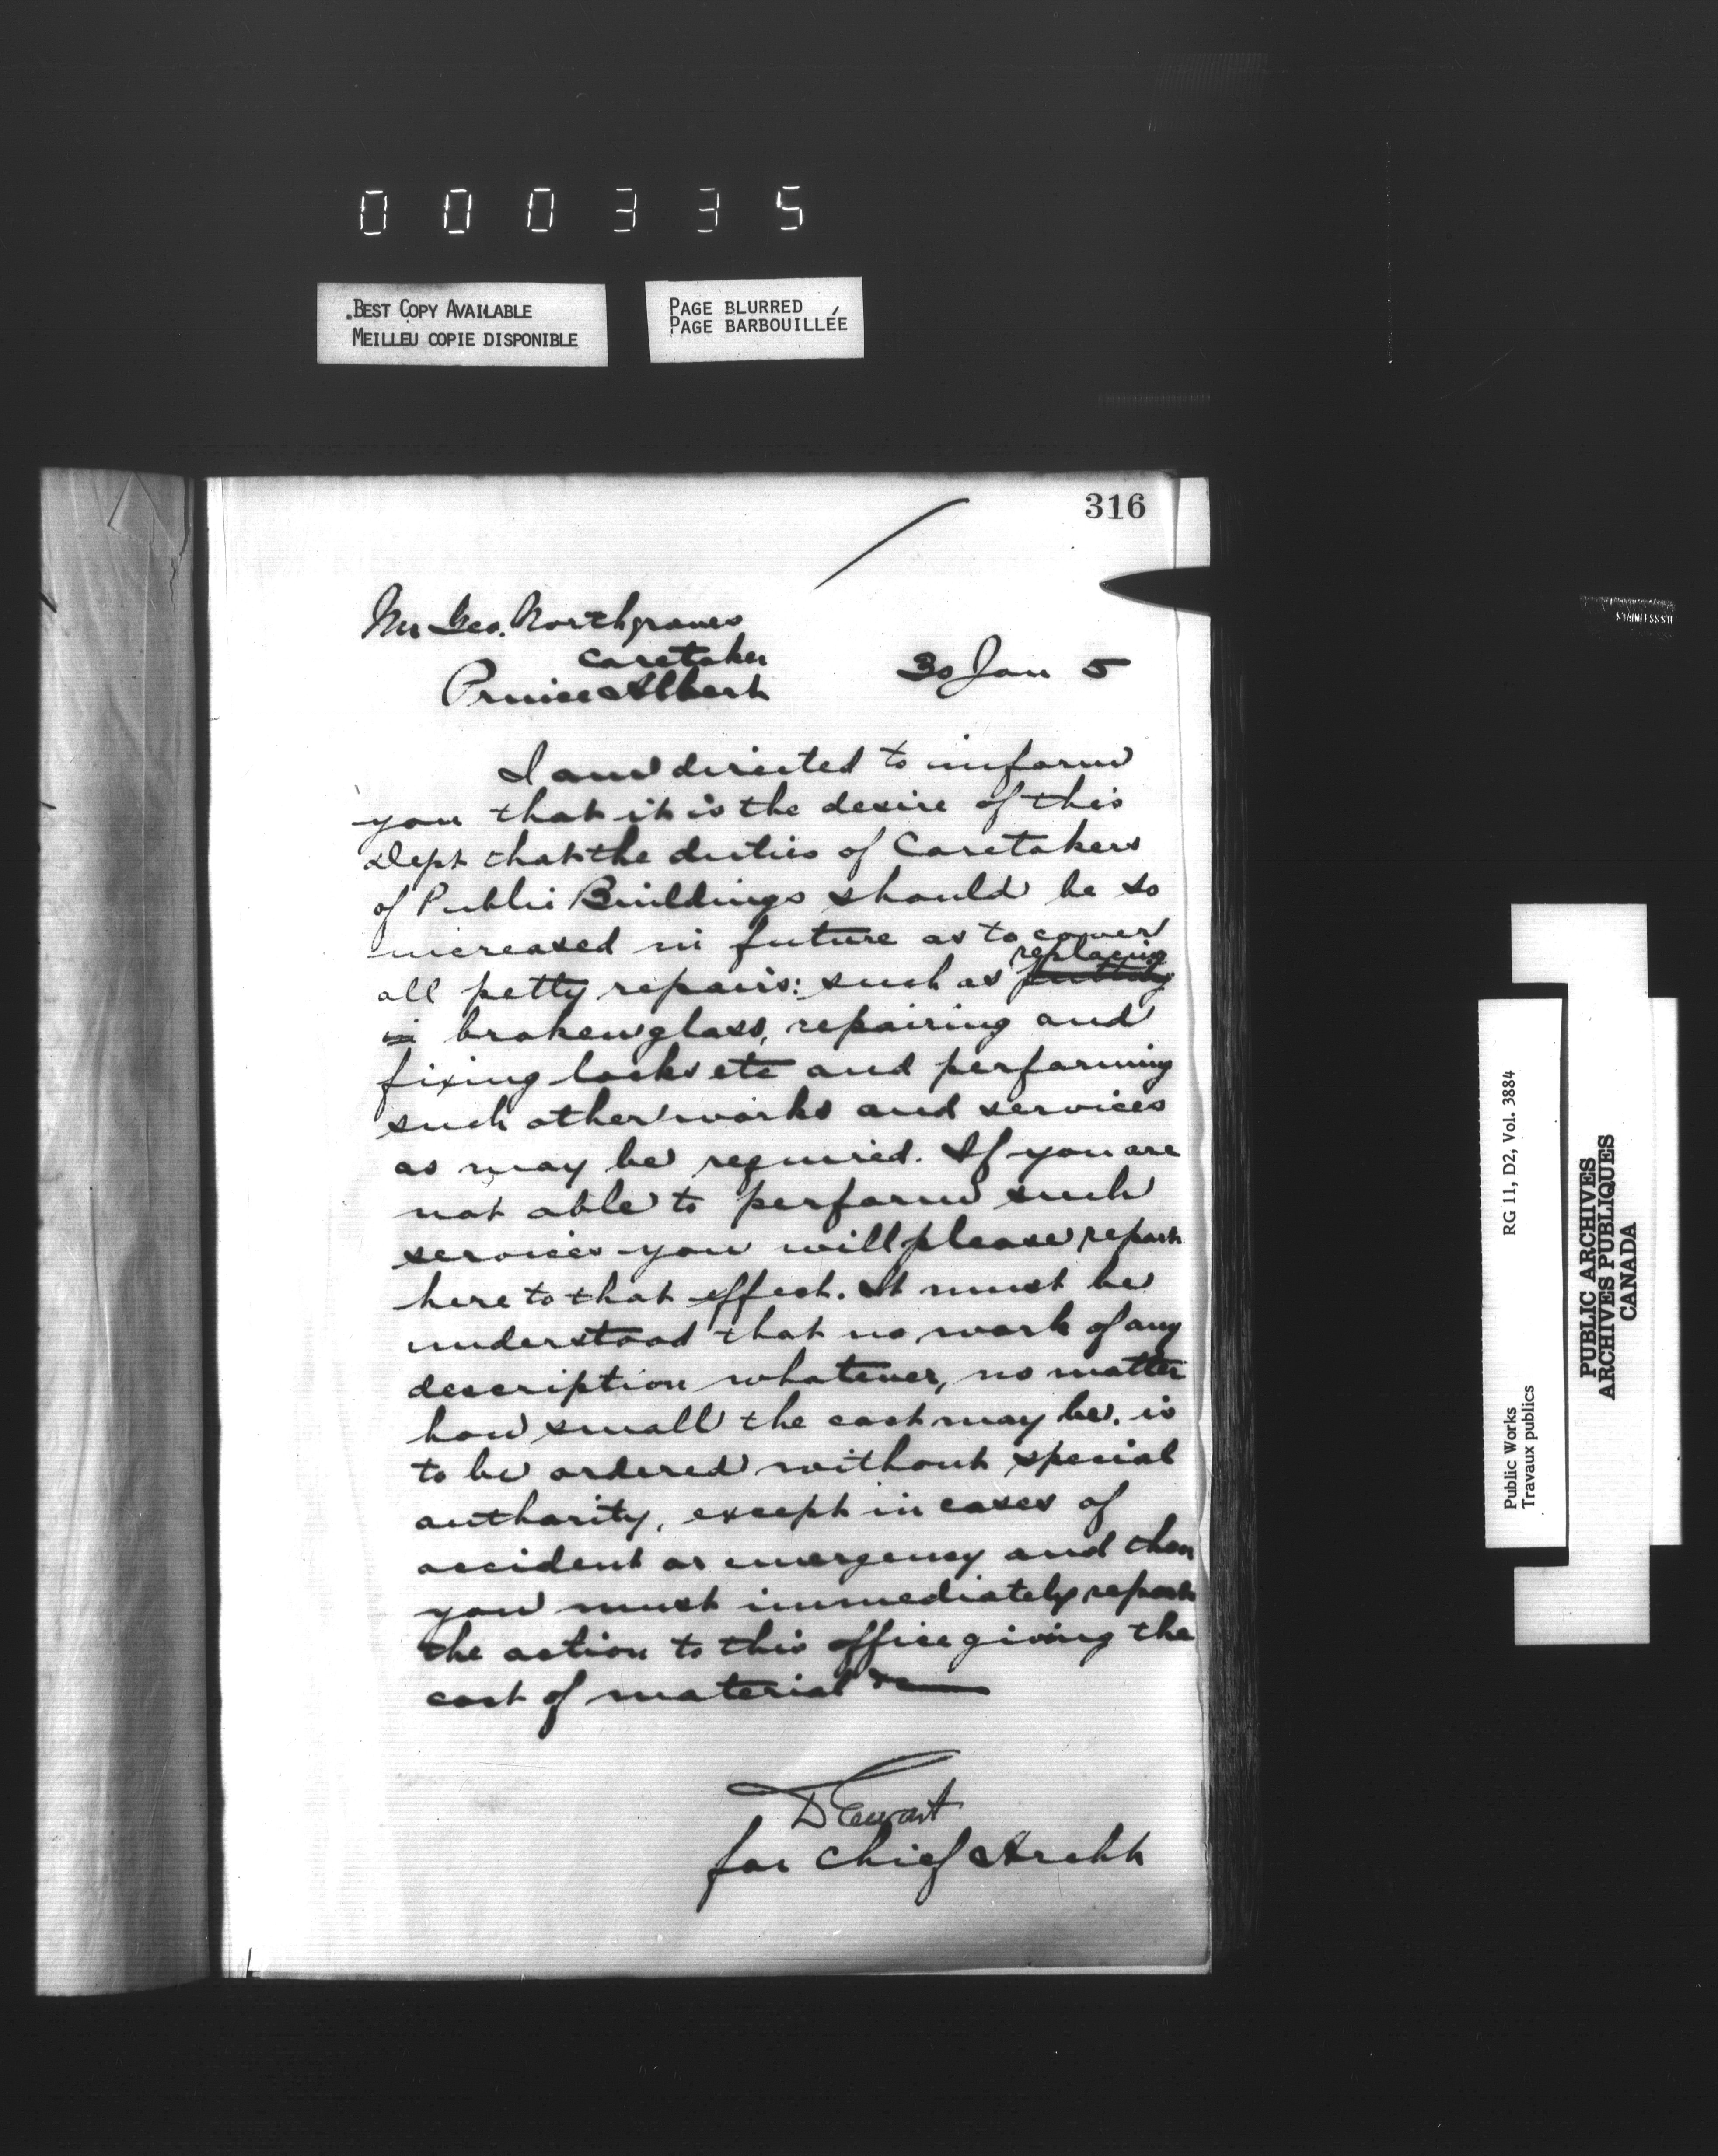 000335
BEST COPY AVAILABLE
MEILLEU COPIE DISPONIBLE
PAGE BLURRED
PAGE BARBOUILLÉE
316
Mr Geo. Northgraves
Caretaker
Prince Albert
30 Jan 5
I am directed to inform
you that it is the desire of this
Dept that the duties of Caretakers
of Public Buildings should be so
increased in future as to cover
replacing
all petty repairs: such as putting
in broken glass, repairing and
fixing locks etc and performing
such other works and services
as may be required. If you are
not able to perform such
services you will please report
here to that effect. It must be
understood that no work of any
description whatever, no matter
how small the cost may be, is
to be ordered without special
authority, except in cases of
accident or emergency and then
you must immediately report
the action to this office giving the
cost of material &c
D Ewart
for Chief Archt
Public Works
Travaux publics
RG 11, D2, Vol. 3884
PUBLIC ARCHIVES
ARCHIVES PUBLIQUES
CANADA